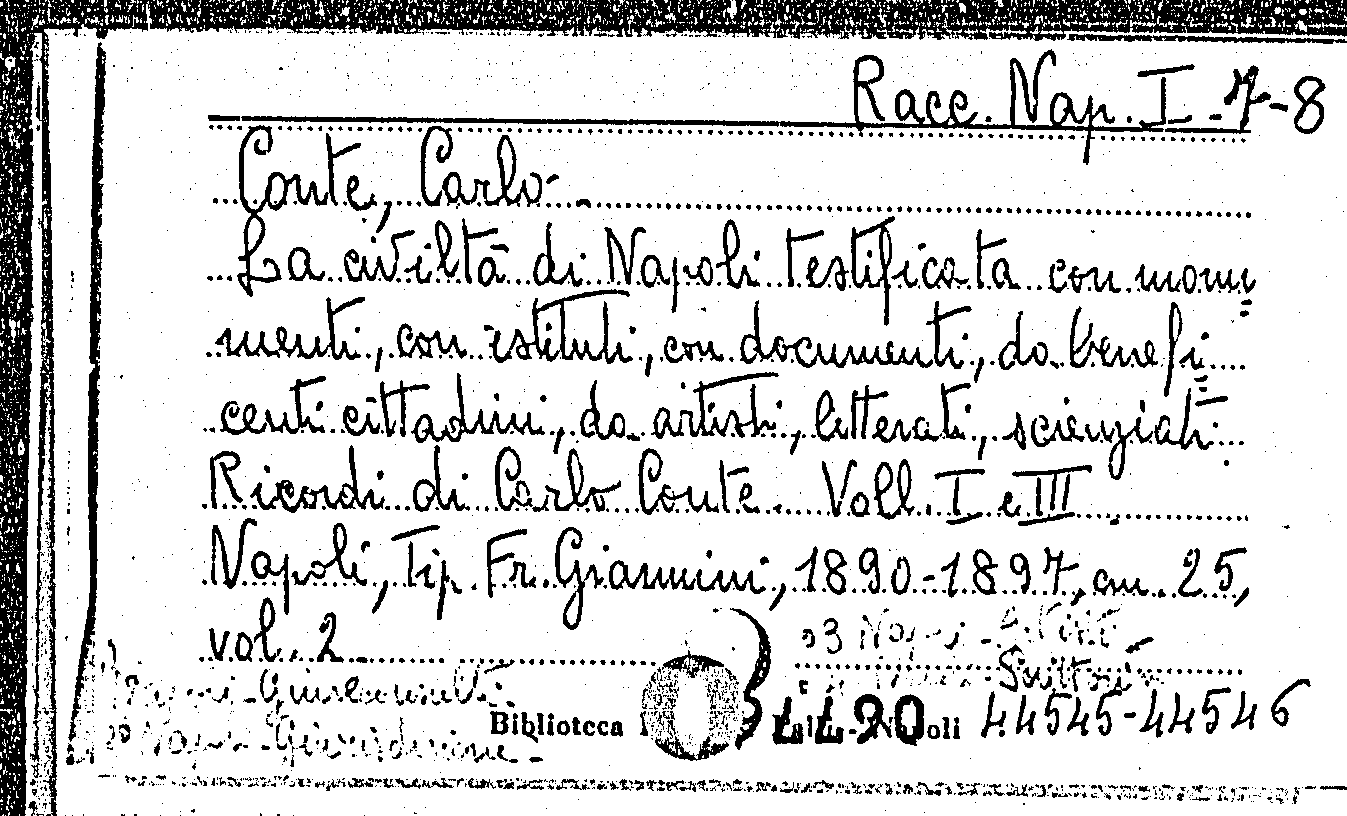 Racc. Nap. I-7-8
Conte, Carlo.
La civiltà di Napoli testificata con monu=
menti, con istituti, con documenti, da benefi=
centi cittadini, da artisti, litterati, scienziati.
Ricordi di Carlo Conte. Voll. I e III.
Napoli, Tip. Fr. Giannini, 1890-1897, cm. 25,
vol. 2
Napoli - Giurisdizione -
Biblioteca 4490 oli 44545-44546